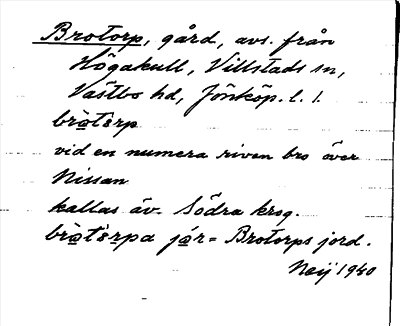 Brotorp, gård, avs. från
Högakull, Villstads sn,
Västbo hd, Jönköp. l. l.
bròt̀ɛrp
vid en numera riven bro över
Nissan
kallas äv. Södra krog.
bròt̀ɛrpa jór = Brotorps jord.
Neij 1940